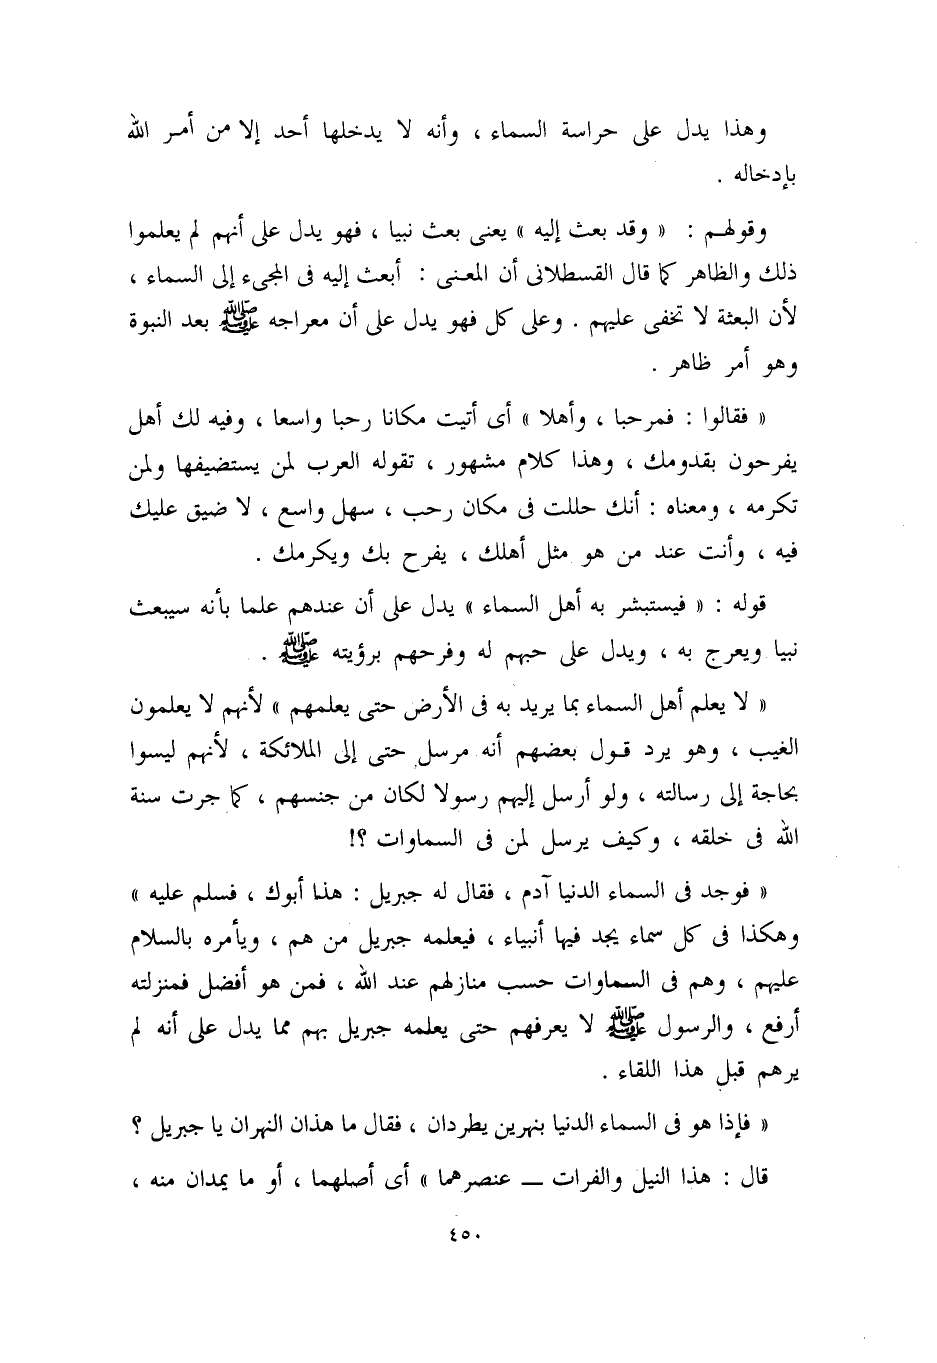 وهذا يدل على حراسة السماء ، وأنه لا يدخلها أحد إلا من أمر الله
بإدخاله .
وقولهم : « وقد بعث إليه » يعنى بعث نبيا ، فهو يدل على أنهم لم يعلموا
ذلك والظاهر كما قال القسطلانى أن المعنى : أبعث إليه فى المجىء إلى السماء ،
لأن البعثة لا تخفى عليهم . وعلى كل فهو يدل على أن معراجه ﷺ بعد النبوة
وهو أمر ظاهر .
« فقالوا : فمرحبا ، وأهلا » أى أتيت مكانا رحبا واسعا ، وفيه لك أهل
يفرحون بقدومك ، وهذا كلام مشهور ، تقوله العرب لمن يستضيفها ولمن
تكرمه ، ومعناه : أنك حللت فى مكان رحب ، سهل واسع ، لا ضيق عليك
فيه ، وأنت عند من هو مثل أهلك ، يفرح بك ويكرمك .
قوله : « فيستبشر به أهل السماء » يدل على أن عندهم علما بأنه سيبعث
نبيا ويعرج به ، ويدل على حبهم له وفرحهم برؤيته ﷺ .
« لا يعلم أهل السماء بما يريد به فى الأرض حتى يعلمهم » لأنهم لا يعلمون
الغيب ، وهو يرد قول بعضهم أنه مرسل حتى إلى الملائكة ، لأنهم ليسوا
بحاجة إلى رسالته ، ولو أرسل إليهم رسولا لكان من جنسهم ، كما جرت سنة
الله فى خلقه ، وكيف يرسل لمن فى السماوات ؟!
« فوجد فى السماء الدنيا آدم ، فقال له جبريل : هذا أبوك ، فسلم عليه »
وهكذا فى كل سماء يجد فيها أنبياء ، فيعلمه جبريل من هم ، ويأمره بالسلام
عليهم ، وهم فى السماوات حسب منازلهم عند الله ، فمن هو أفضل فمنزلته
أرفع ، والرسول ﷺ لا يعرفهم حتى يعلمه جبريل بهم مما يدل على أنه لم
يرهم قبل هذا اللقاء .
« فإذا هو فى السماء الدنيا بنهرين يطردان ، فقال ما هذان النهران يا جبريل ؟
قال : هذا النيل والفرات ــ عنصرهما » أى أصلهما ، أو ما يمدان منه ،
٤٥٠